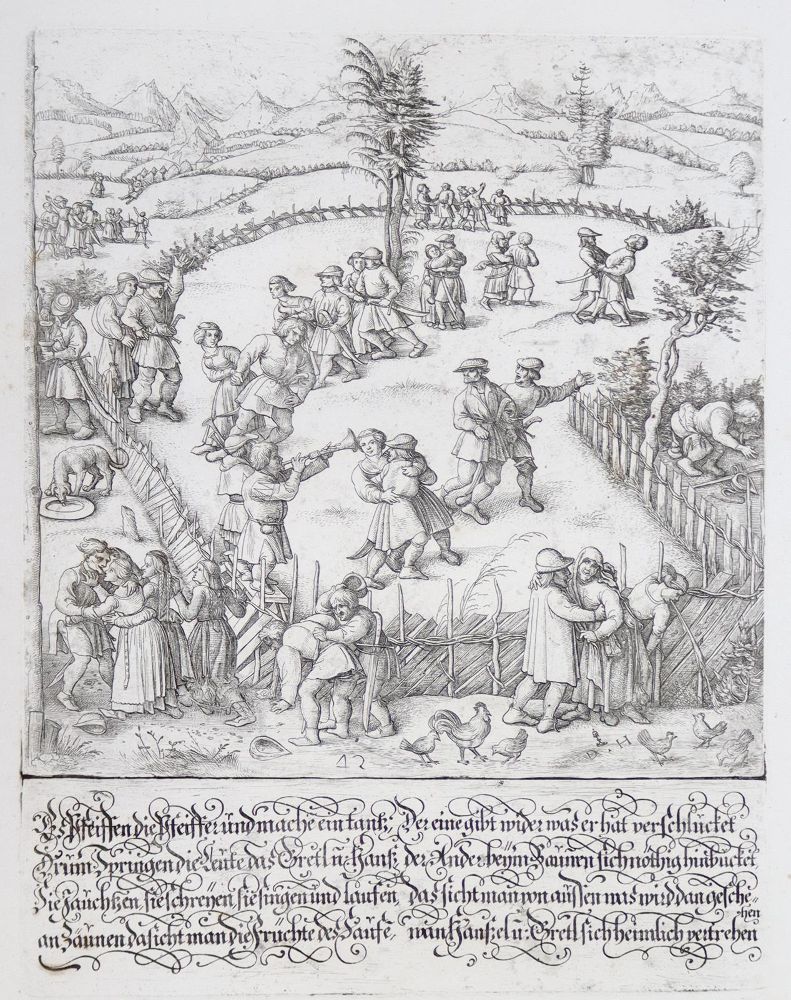 12
D H
Es Pfeiffen die Pfeiffer und mache ein tantz, Der eine gibt wider was er hat verschlucket
Drum Springen die Leute das Gretl u: Hansz der Ander beÿm Zaunen sich nöthig hinbücket
Sie Jauchtzen sie schreÿen sie singen und laufen das sicht man von aüssen was wird dan gesche-
hen
an Zäunen da sicht man die Fruchte des Saufe, wan Hanszel u: Gretl sich heimlich vertrehen